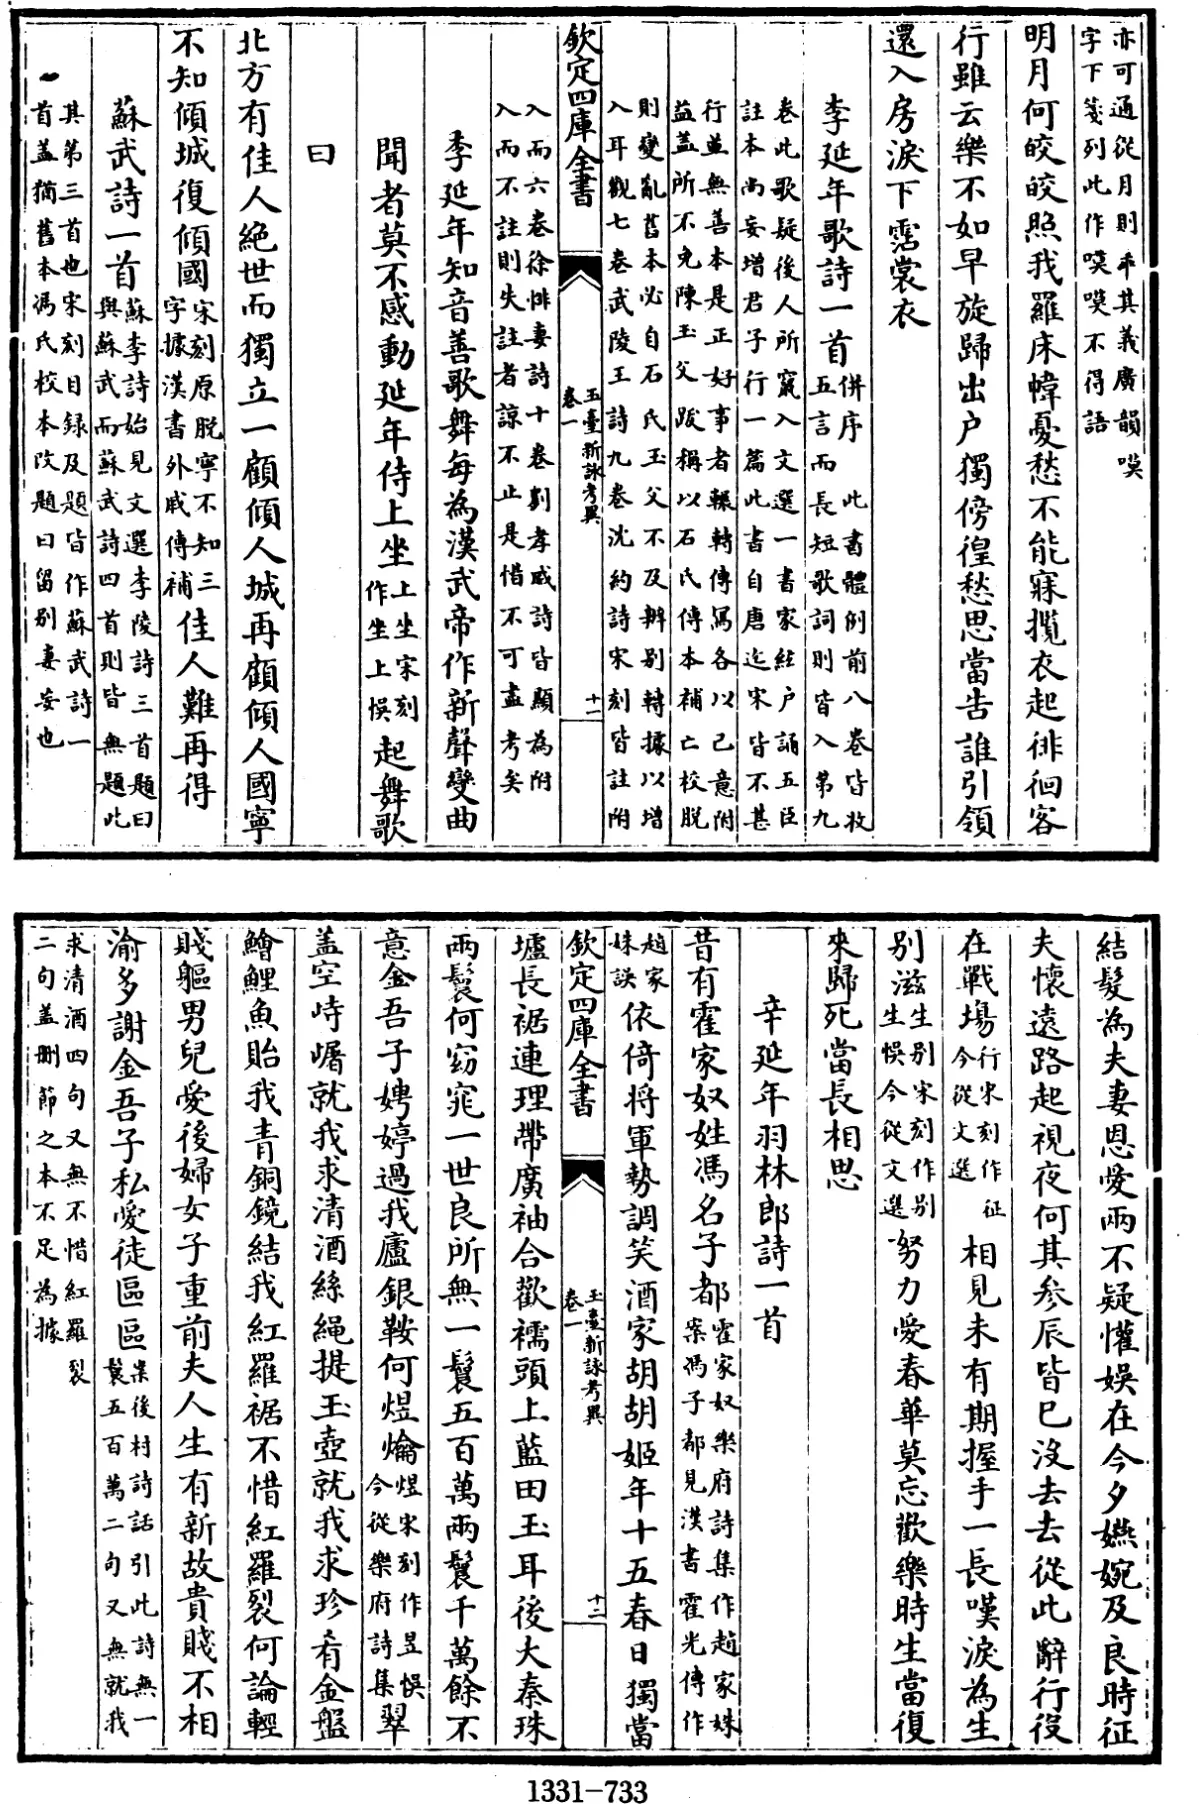 亦可通從月則乖其義廣韻嘆
字下箋列此作嘆嘆不得語
明月何皎皎照我羅床幃憂愁不能寐攬衣起徘徊客
行雖云樂不如早旋歸出户獨傍徨愁思當告誰引領
還入房淚下霑裳衣
李延年歌詩一首併序　此書體例前八卷皆收
五言而長短歌詞則皆入第九
卷此歌疑後人所竄入文選一書家絃户誦五臣
註本尚妄增君子行一篇此書自唐迄宋皆不甚
行並無善本是正好事者輾轉傳寫各以己意附
益盖所不免陳玉父跋稱以石氏傳本補亡校脱
則變亂舊本必自石氏玉父不及辨别轉據以增
入耳觀七卷武陵王詩九卷沈約詩宋刻皆註附
欽定四庫全書
玉臺新詠考異
卷一
十一
入而六卷徐悱妻詩十卷劉孝威詩皆顯為附
入而不註則失註者諒不止是惜不可盡考矣
李延年知音善歌舞每為漢武帝作新聲變曲
聞者莫不感動延年侍上坐上坐宋刻作坐上悞起舞歌
曰
北方有佳人絶世而獨立一顧傾人城再顧傾人國寧
不知傾城復傾國宋刻原脱寧不知三字據漢書外戚傳補佳人難再得
蘇武詩一首蘇李詩始見文選李陵詩三首題曰
與蘇武而蘇武詩四首則皆無題此
其第三首也宋刻目録及題皆作蘇武詩一
首盖猶舊本馮氏校本改題曰留别妻妄也
結髮為夫妻恩愛兩不疑懽娱在今夕嬿婉及良時征
夫懷遠路起視夜何其参辰皆已没去去從此辭行役
在戰場行宋刻作征今從文選相見未有期握手一長嘆淚為生
别滋生别宋刻作别生悞今從文選努力愛春華莫忘歡樂時生當復
來歸死當長相思
辛延年羽林郎詩一首
昔有霍家奴姓馮名子都霍家奴樂府詩集作趙家姝
案馮子都見漢書霍光傳作
趙家姝誤依倚將軍勢調笑酒家胡胡姬年十五春日獨當
欽定四庫全書
玉臺新詠考異
卷一
十二
壚長裾連理帶廣袖合歡襦頭上藍田玉耳後大秦珠
兩鬟何窈窕一世良所無一鬟五百萬兩鬟千萬餘不
意金吾子娉婷過我廬銀鞍何煜爚煜宋刻作昱悞今從樂府詩集翠
盖空峙嶇就我求清酒絲繩提玉壺就我求珍肴金盤
鱠鯉魚貽我青銅鏡結我紅羅裾不惜紅羅裂何論輕
賤軀男兒愛後婦女子重前夫人生有新故貴賤不相
渝多謝金吾子私愛徒區區案後村詩話引此詩無一
鬟五百萬二句又無就我
求清酒四句又無不惜紅羅裂
二句盖删節之本不足為據
1331-733